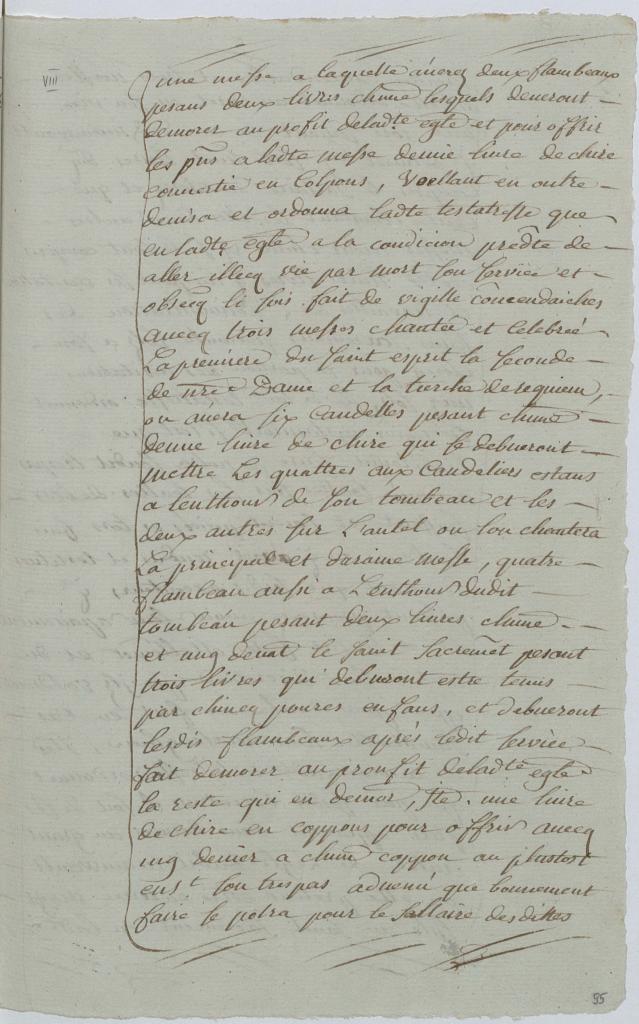 VIII
une messe a laquelle auera deux flambeaux
pesans deux livres chune lesquels deueront
demorer au profit deladte egle et pour offrir
les pns a ladte messe demie liure de chire
conuertie en Colpons, Voellant en outre
deuisa et ordonna ladte testatresse que
en ladte egle a la condicion predte de
aller illecq vie par mort son service et
obsecq li sois fait de vigille comendaiches
auecq trois messes chantée et Celebreé
La premiere du saint esprit la seconde
de nre Dame et la tierche de requiem,
ou auera six Candelles pesant chune
demie liure de chire qui se debueront
mettre Les quattres aux Candeliers estans
a lenthour de son tombeau et les
deux autres sur L'autel ou lon chantera
La principal et daraine messe, quatre
flambeau aussi a L'enthour dudit
tombeau pesant deux liures chune
et ung deuat le saint Sacremet pesant
trois livres qui debueront estre tenus
par chincq poures enfans, et debueront
lesdis flambeaux aprés ledit service
fait demorer au proufit deladte egle
la reste qui en demor, Ite. une liure
de chire en coppons pour offrir auecq
ung denier a chune coppon au plustost
enst son trespas aduenu que bonnement
faire se polra pour le Sallaire desdittes
95